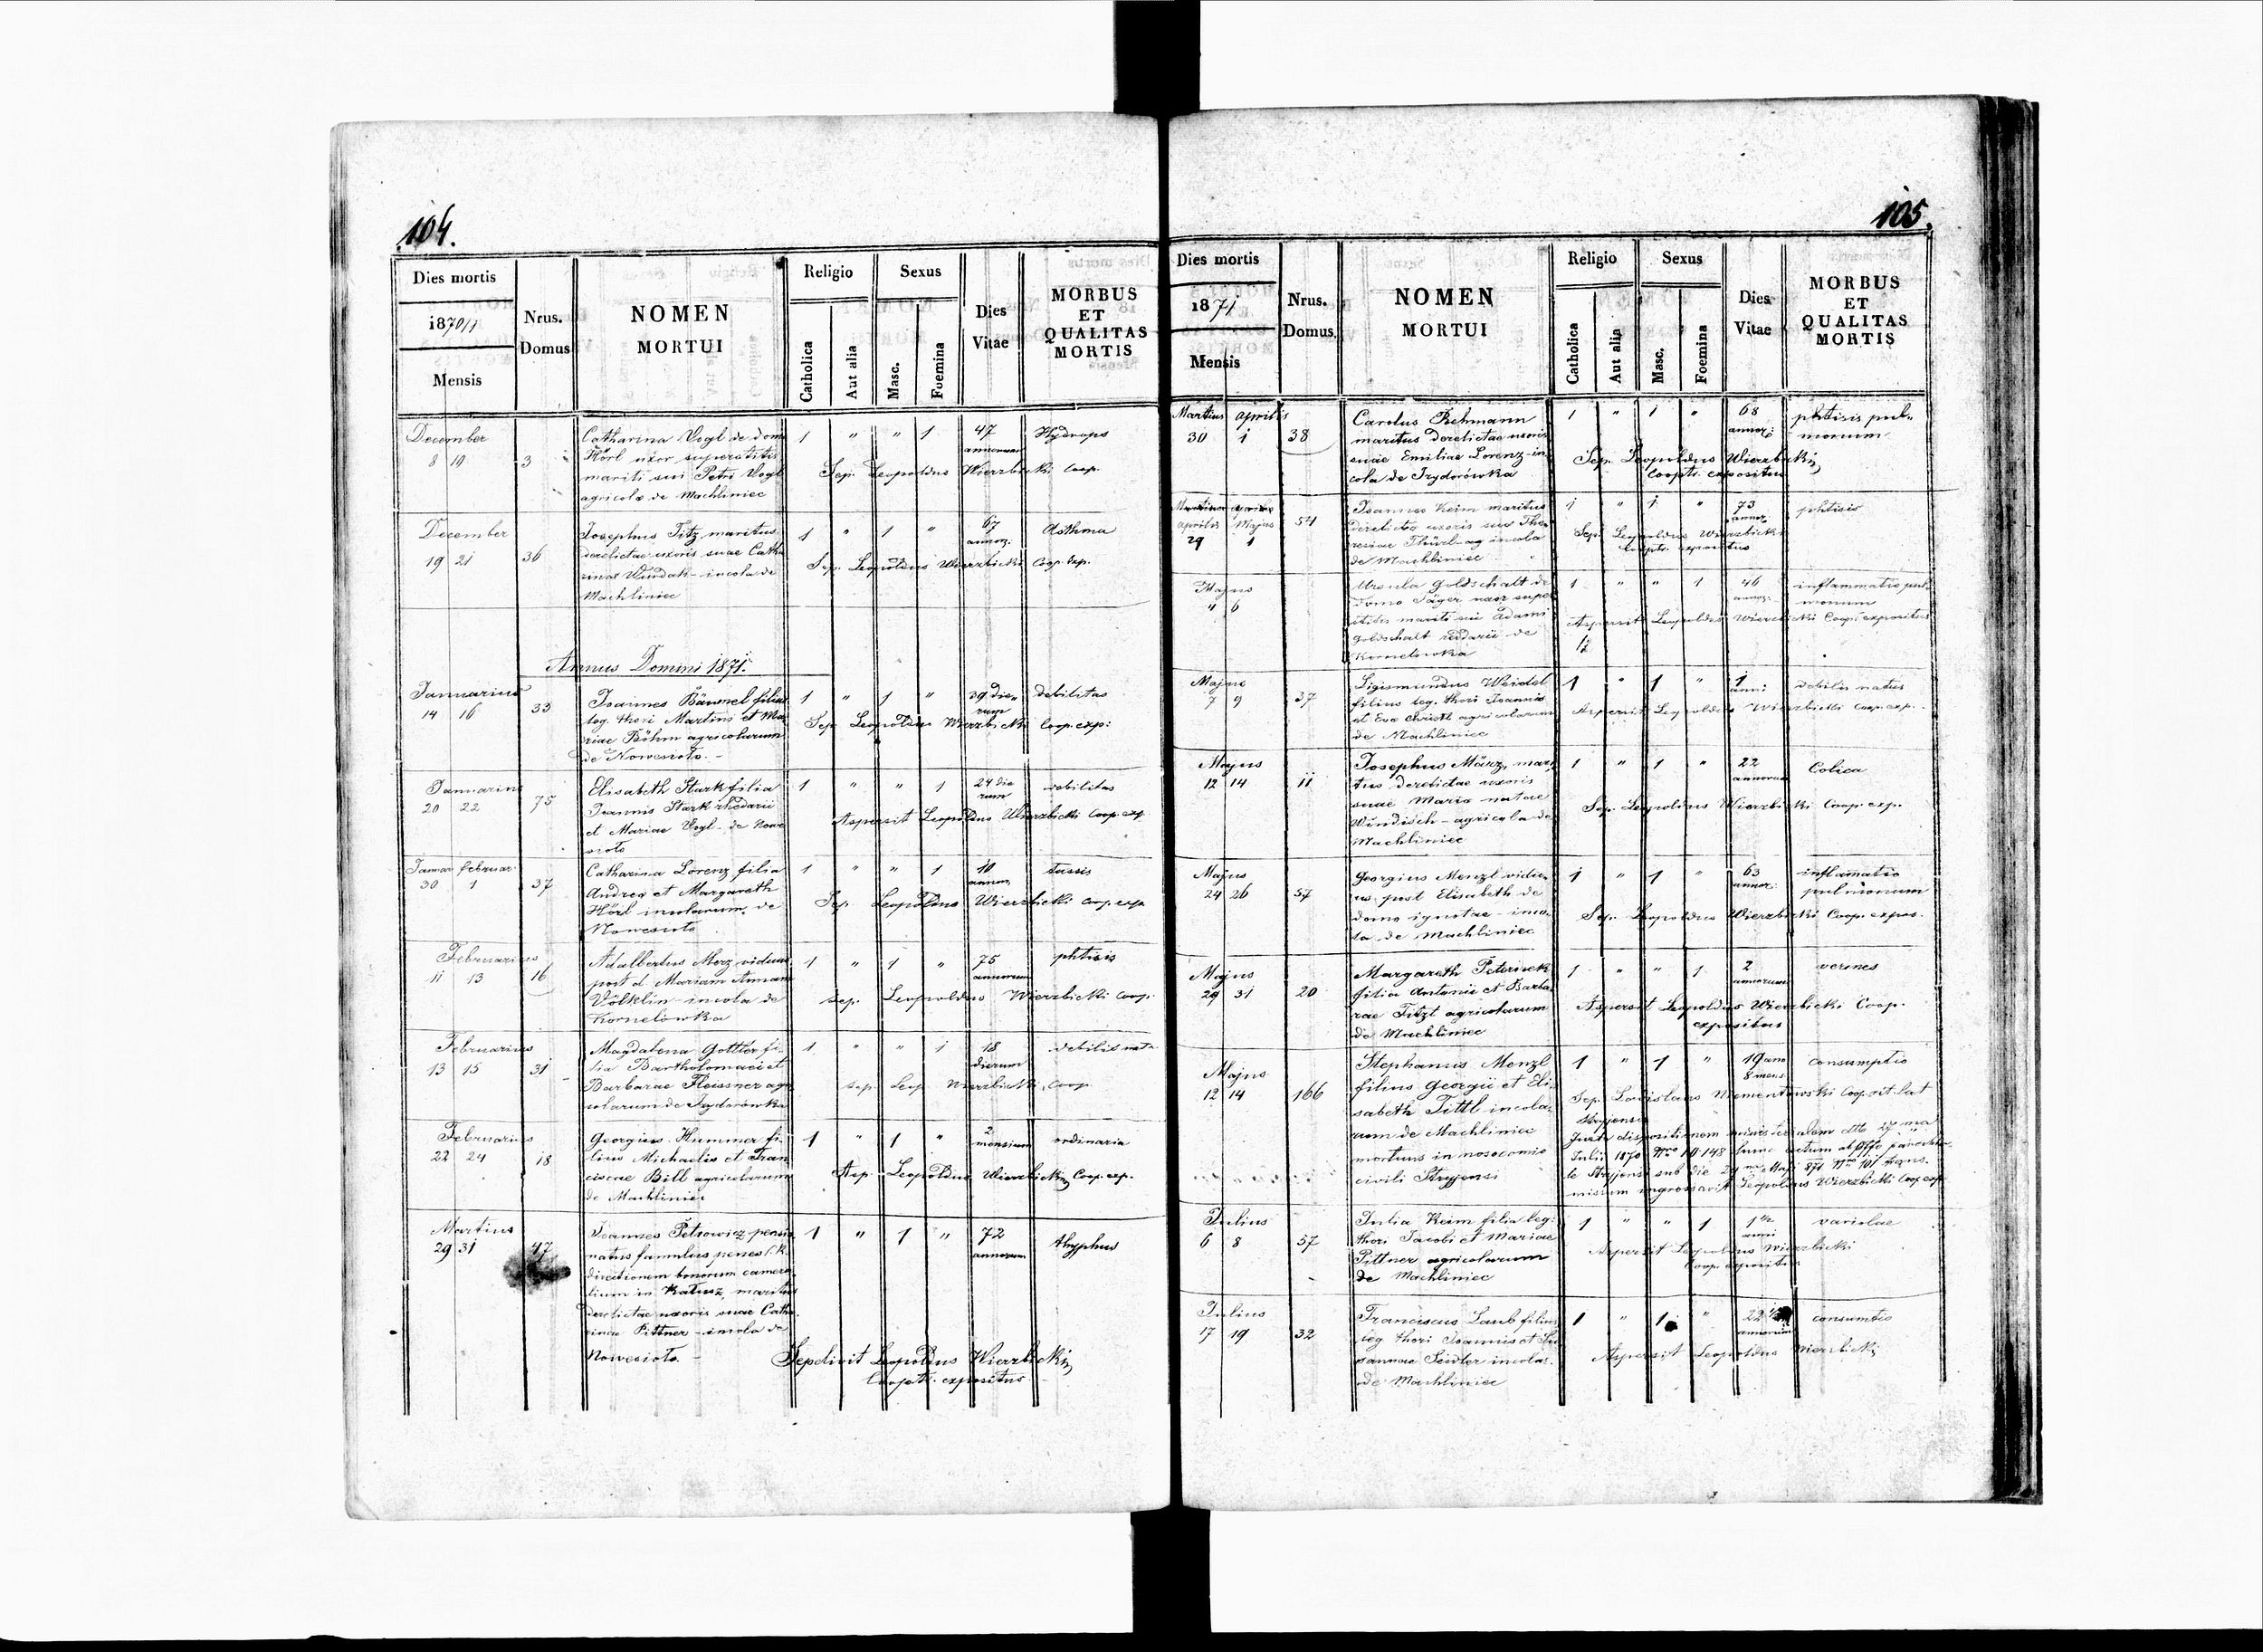 104.
Dies mortis
1870/1
Mensis
Nrus.
Domus
NOMEN
MORTUI
Religio
Catholica
Aut alia
Sexus
Masc.
Foemina
Dies
Vitae
MORBUS
ET
QUALITAS
MORTIS
December
8 10
3
Catharina Vogl de domo
Hörl uxor superstitis
mariti sui Petri Vogl
agricolae de Machliniec
1 " " 1
47
annorum
Hydrops
Sep. Leopoldus Wierzbicki Coop.
December
19 21
36
Josephus Titz maritus
derelictae uxoris suae Catha
rinae Windak - incola de
Machliniec
1 " 1 "
67
annor:
Asthma
Sep. Leopoldus Wierzbicki Coop. exp.
Annus Domini 1871.
Januarius
14 16
33
Joannes Bäumel filius
leg. thori Martini et Ma
riae Böhm agricolarum
de Nowesioło. -
1 " 1 "
29 die
rum
debilitas
Sep. Leopoldus Wierzbicki Coop. exp:
Januarius
20 22
75
Elisabeth Stark filia
Joannis Stark rhedarii
et Mariae Vogl - de Nowe
sioło
1 " " 1
24 die
rum
debilitas
Aspersit Leopoldus Wierzbicki Coop. exp
Januar Februar
30 1
37
Catharina Lorenz filia
Andrea et Margareth
Hörl incolarum de
Nowesioło
1 " " 1
10
annor.
tussis
Sep. Leopoldus Wierzbicki coop. exp
Februarius
11 13
16
Adalbertus Merz viduus
post d. Mariam Annam
Völklin - incola de
Kornelówka
1 " 1 "
75
annorum
phtisis
Sep. Leopoldus Wierzbicki Coop.
Februarius
13 15
31
Magdalena Gottler fi-
lia Bartholomaei et
Barbarae Fleissner agri
colarum de Izydorówka
1 " " 1
18
dierum
debilis nata
Sep. Leop. Wierzbicki, Coop
Februarius
22 24
18
Georgius Hummer fi-
lius Michaelis et Fran
ciscae Bill agricolarum
de Machliniec
1 " 1 "
2
mensium
ordinaria
Asp. Leopoldus Wierzbicki Coop. exp.
Martius
29 31
47
Joannes Petrowicz pensio
natus famulus penes C.K.
directionem bonorum camera
lium in Kałusz, maritus
derelictae uxoris suae Catha
rinae Pittner - incola de
Nowesioło. -
1 " 1 "
72
annorum
thyphus
Sepelivit Leopoldus Wierzbicki
Coopt. expositus
105.
Dies mortis
1871
Mensis
Nrus.
Domus
NOMEN
MORTUI
Religio
Catholica
Aut alia
Sexus
Masc.
Foemina
Dies
Vitae
MORBUS
ET
QUALITAS
MORTIS
Martius aprilis
30 1
38
Carolus Rehmann
maritus derelictae uxoris
suae Emiliae Lorenz - in
cola de Izydorówka
1 " 1 "
68
annor:
phtisis pul-
monum
Sep. Leopoldus Wierzbicki
Coopt. expositus
aprilis Majus
29 1
54
Joannes Keim maritus
derelictae uxoris suae The
resiae Thürl - ag incola
de Machliniec
1 " 1 "
73
annor.
phtisis
Sep. Leopoldus Wierzbicki
Coopt. expositus
Majus
4 6
Ursula Goldschalt de
domo Jäger uxor super
stitis mariti sui Adami
Goldschalt reddarii de
Kornelówka
1 " " 1
46
annor.
inflammatio pul
monum
Aspersit Leopoldus Wierzbicki Coop. expositus
12
Majus
7 9
37
Sigismundus Weidel
filius leg. thori Joannis
et Eva Christl agricolarum
de Machliniec
1 " 1 "
1
anni
debilis natus
Aspersit Leopoldus Wierzbicki Coop. exp.
Majus
12 14
11
Josephus März, mari
tus derelictae uxoris
suae Maria natae
Windisch - agricola de
Machliniec
1 " 1 "
22
annorum
Colica
Sep. Leopoldus Wierzbicki Coop. exp.
Majus
24 26
57
Georgius Menzl vidu
us, post Elisabeth de
domo ignotae - inco
la de Machliniec
1 " 1 "
63
annor.
inflamatio
pulmonum
Sep. Leopoldus Wierzbicki Coop. expos.
Majus
29 31
20
Margareth Peternek
filia Antonii et Barba
rae Titzl agricolarum
de Machliniec
1 " " 1
2
annorum
vermes
Aspersit Leopoldus Wierzbicki Coop.
expositus
Majus
12 14
166
Stephanus Menzl
filius Georgii et Eli
sabeth Tittl incola
rum de Machliniec
mortuus in nosocomio
civili Stryjensi
1 " 1 "
19 ann
8 mens
consumptio
Sep. Ladislaus Coop. rit. lat
Stryjensis
Juxta dispositionem ministerialem
Julii 1870 Nro 10148 hunc actum ab offo parochia
le Stryjensi sub die Maji 871 Nro 101 trans.
missum ingrossavit Leopoldus Wierzbicki Coop exp
Julius
6 8
57
Julia Keim filia leg:
thori Jacobi et Mariae
Pittner agricolarum
de Machliniec
1 " " 1
anni
variolae
Aspersit Leopoldus Wierzbicki
Coop. expositus
Julius
17 19
32
Franciscus Laub filius
leg thori Joannis et Su
sannae Seidler incolar.
de Machliniec
1 " 1 "
22
annorum
consumtio
Aspersit Leopoldus Wierzbicki